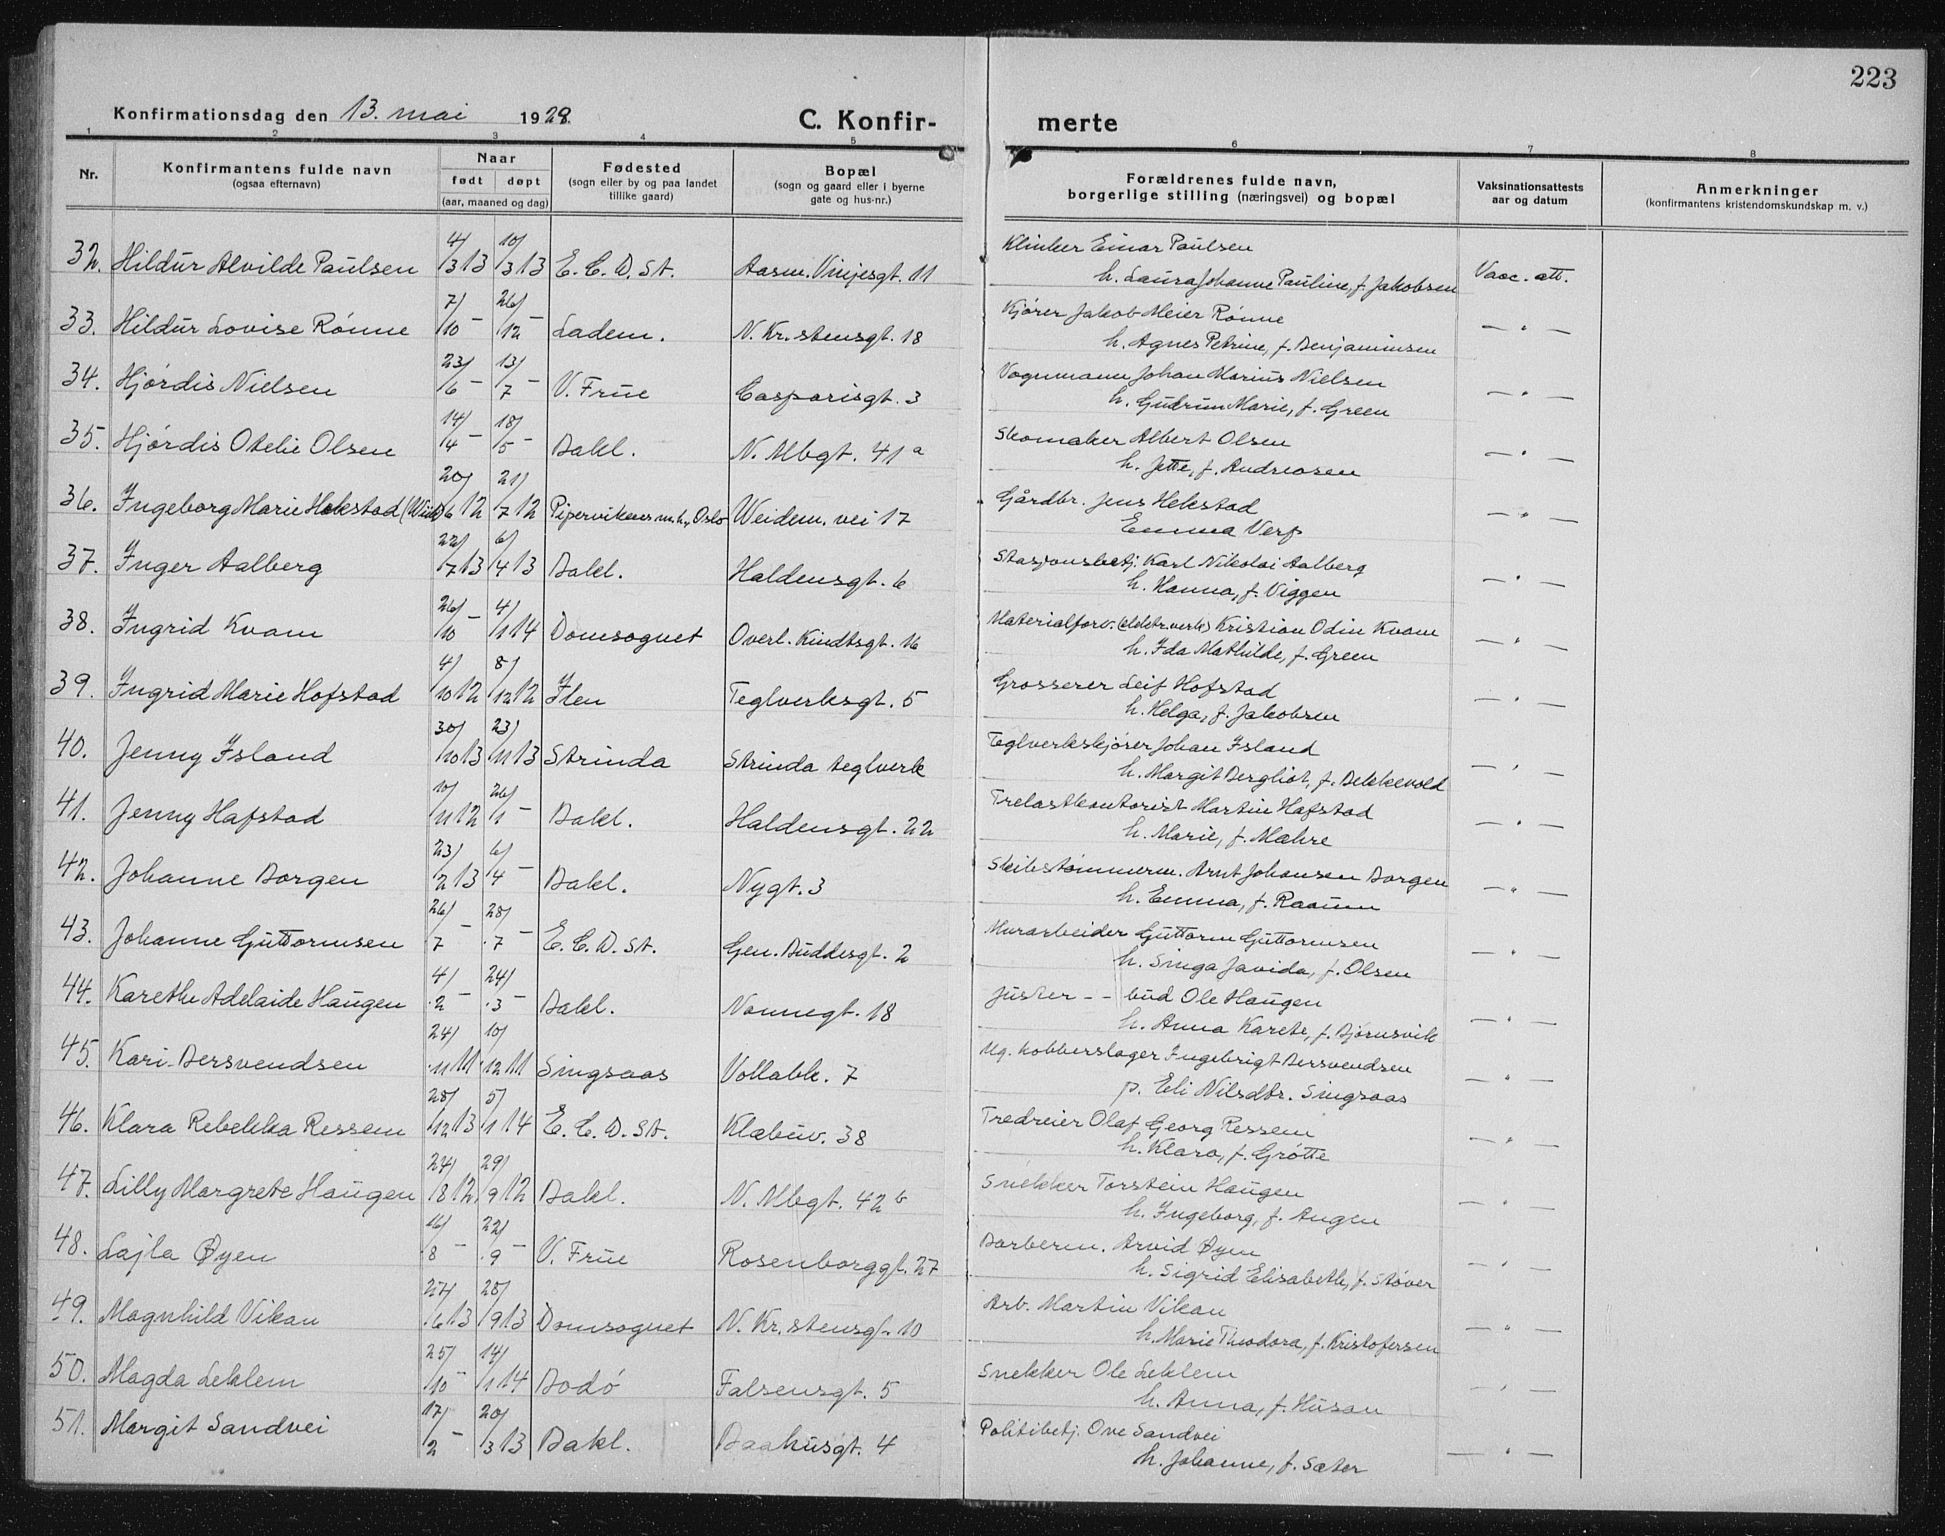 223
Konfirmationsdag den 13. mai 1928.
C. Konfir-
merte
1 2 3 4 5 6 7 8
Nr.
Konfirmantens fulde navn
(ogsaa efternavn)
Naar
født døpt
(aar, maaned og dag)
Fødested
(sogn eller by og paa landet
tillike gaard)
Bopæl
(sogn og gaard eller i byerne
gate og hus-nr.)
Forældrenes fulde navn,
borgerlige stilling (næringsvei) og bopæl
Vaksinationsattests
aar og datum
Anmerkninger
(konfirmantens kristendomskundskap m. v.)
32. Hildur Alvilde Paulsen 4/3 13 10/3 13 E. C. D. St. Aasm. Vinjesgt. 11 Klinker Einar Paulsen
h. Laura Johanne Pauline, f. Jakobsen Vacc. att.
33. Hildur Lovise Rönne 7/10 – 26/12 – Ladem. N. Kr.stensgt. 18 Kjører Jakob Meier Rønne
h. Agnes Petrine, f. Benjaminsen — " —
34. Hjördis Nielsen 23/6 – 13/7 – V. Frue Casparisgt. 3 Vognmann Johan Marius Nielsen
h. Gudrun Marie, f. Green — " —
35. Hjördis Otelie Olsen 14/4 – 18/5 – Bakl. N. Mbgt. 41 a Skomaker Albert Olsen
h. Jette, f. Andreasen — " —
36. Ingeborg Marie Hekstad 20/6 12 21/7 12 Pipervikens m.h., Oslo Weidem. vei 17 Gårdbr. Jens Hekstad
Emma Verp — " —
37. Inger Aalberg 22/7 13 6/4 13 Bakl. Haldensgt. 6 Stasjonsbetj. Karl Nikolai Aalberg
h. Hanna, f. Viggen — " —
38. Ingrid Kvam 26/10 – 4/1 14 Domsognet Overl. Kindtsgt. 16 Materialforv. (elektr.verk) Kristian Odin Kvam
h. Ida Mathilde, f. Green — " —
39. Ingrid Marie Hofstad 4/10 12 8/12 12 Ilen Teglverksgt. 5 Grosserer Leif Hofstad
h. Helga, f. Jakobsen — " —
40. Jenny Island 30/10 13 23/11 13 Strinda Strinda teglverk Teglverkskjører Johan Island
h. Margit Bergliot, f. Bekkevold — " —
41. Jenny Hafstad 10/11 12 26/1 – Bakl. Haldensgt. 22 Trelastkontorist Martin Hafstad
h. Marie, f. Mæhre — " —
42. Johanne Borgen 23/2 13 6/4 – Bakl. Nygt. 3 Skibstömmerm. Arnt Johansen Borgen
h. Emma, f. Raaum — " —
43. Johanne Guttormsen 26/7 – 28/7 – E. C. D. St. Gen. Buddesgt. 2 Murarbeider Guttorm Guttormsen
h. Singa Javida, f. Olsen — " —
44. Karethe Adelaide Haugen 4/2 – 24/3 – Bakl. Nonnegt. 18 Juster - - bud Ole Haugen
h. Anna Karete, f. Bjørnsvik — " —
45. Kari Bersvendsen 24/11 11 10/12 11 Singsaas Vollabk. 7 Ug. kobberslager Ingebrigt Bersvendsen
p. Eli Nilsdtr. Singsaas — " —
46. Klara Rebekka Ressem 28/12 13 5/1 14 E. C. D. St. Klæbuv. 38 Tredreier Olaf Georg Ressem
h. Klara, f. Grötte — " —
47. Lilly Margrete Haugen 24/8 12 29/9 12 Bakl. N. Mbgt. 42 b Snekker Torstein Haugen
h. Ingeborg, f. Augen — " —
48. Lajla Øyen 16/8 – 22/9 – V. Frue Rosenborggt. 27 Barberm. Arvid Øyen
h. Sigrid Elisabeth, f. Støver — " —
49. Magnhild Vikan 27/6 13 28/9 13 Domsognet N. Kr.stensgt. 10 Arb. Martin Vikan
h. Marie Theodora, f. Kristofersen — " —
50. Magda Leklem 25/10 – 14/1 14 Bodö Falsensgt. 5 Snekker Ole Leklem
h. Anna, f. Husan — " —
51. Margit Sandvei 17/2 – 20/3 13 Bakl. Baahusgt. 4 Politibetj. Ove Sandvei
h. Johanne, f. Sæter — " —